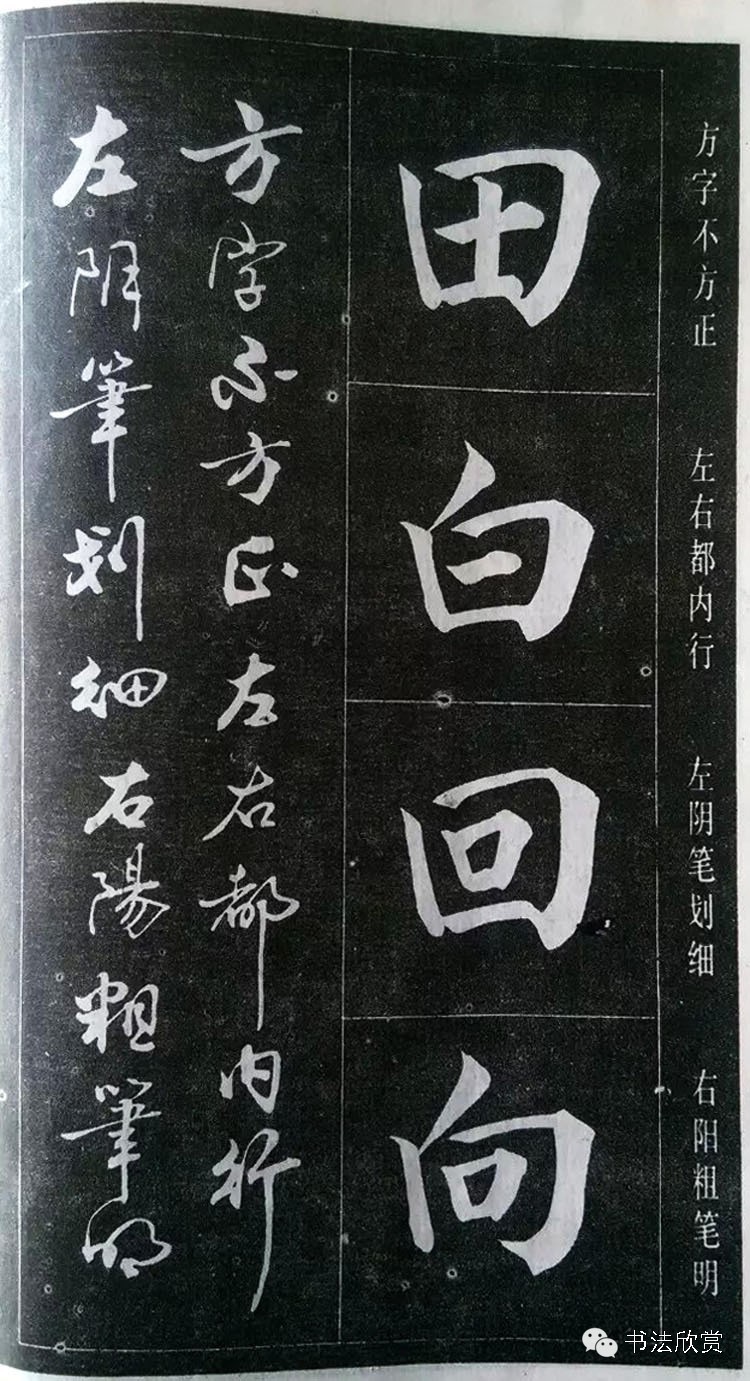 方字不方正 左右都内行 左阴笔划细 右阳粗笔明
田
白
回
向
方字不方正左右都内行
左阴筆划细右陽粗筆明
书法欣赏